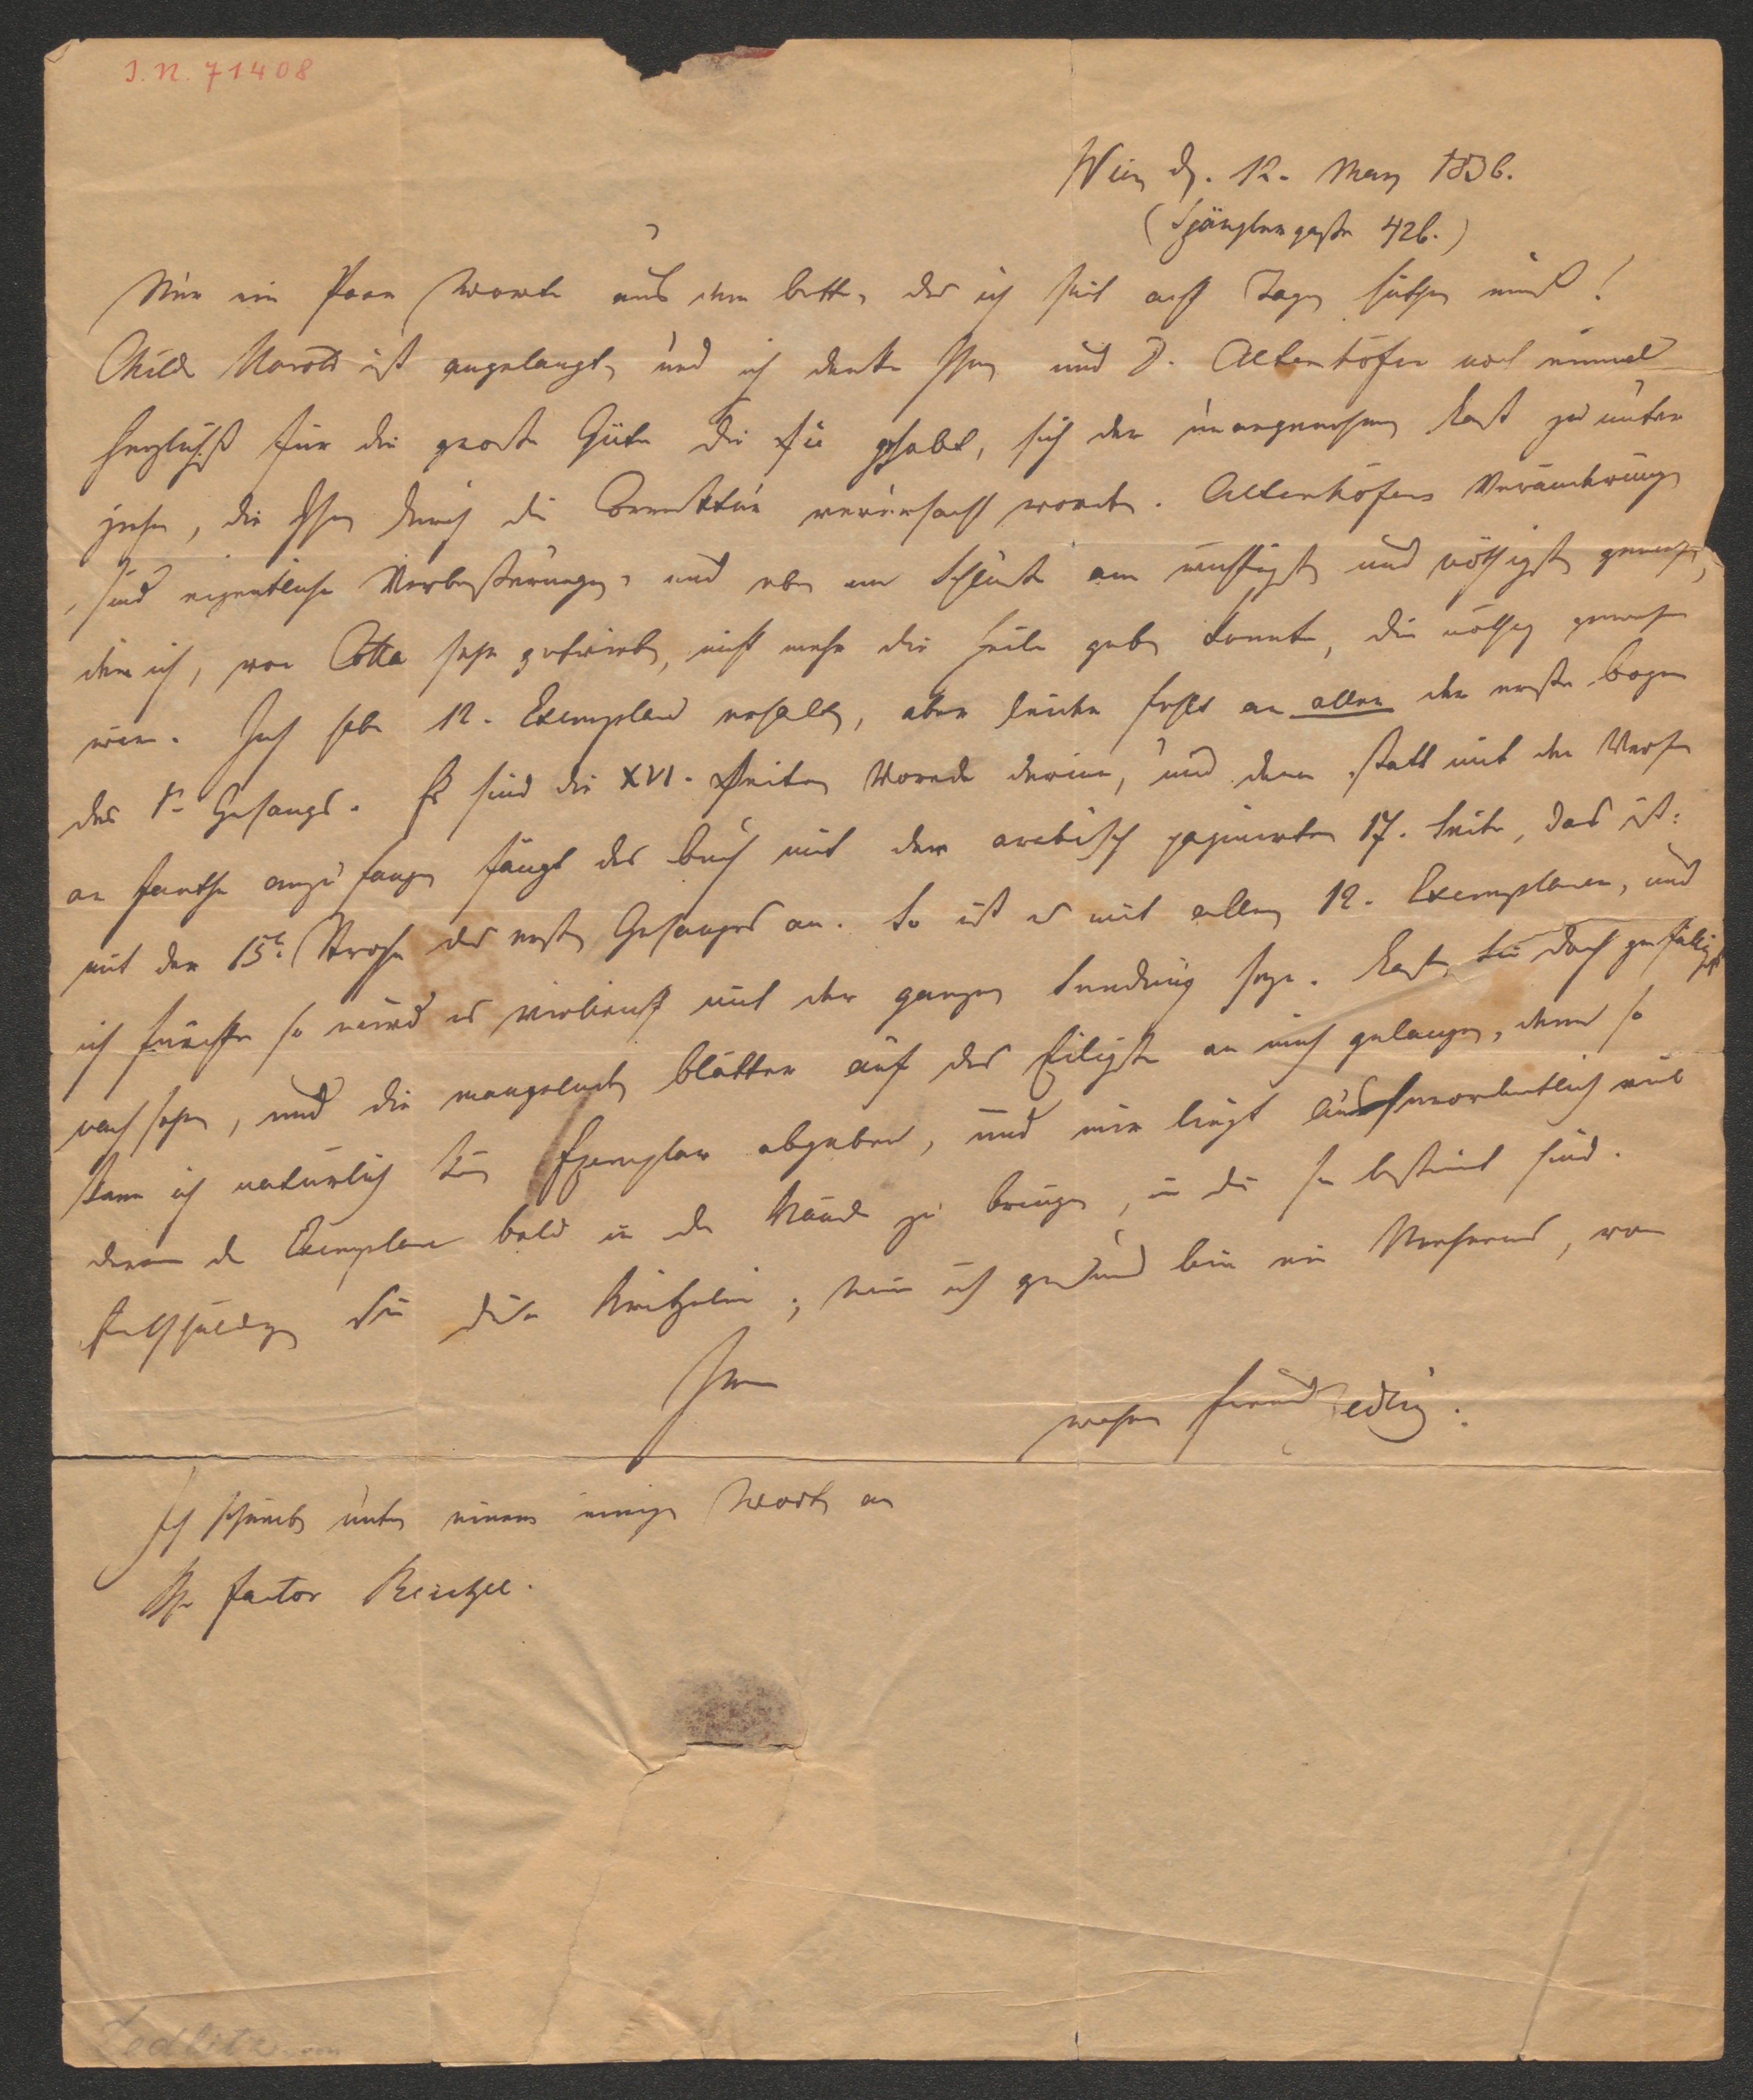 I. N. 71408
Wien d. 12. März 1836.
(Spänglergaße 426.)
Nur ein Paar Worte aus dem Bette, das ich seit acht Tagen hüthen muß!
Childe Harold ist angelangt, und ich danke Ihnen und D. Altenhöfer noch einmal
herzlichst für die große Güte die Sie gehabt, sich der unangenehmen Last zu unter
ziehen, die Ihnen durch die Correktur verursacht worden. Altenhöfers Veränderungen
sind eigentliche Verbeßerungen, und eben am Schluße am wichtigsten und nöthigsten gewesen,
dem ich, von Cotta sehr getrieben, nicht mehr die Feile geben konnte, die nöthig gewesen
wäre. Ich habe 12. Exemplare erhalten, aber leider fehlt an allen der erste Bogen
des 1n Gesangs. Es sind die XVI. Seiten Vorrede darinn, und dann statt mit den Versen
an Janthe anzufangen fängt das Buch mit der arabisch paginirten 17. Seite, das ist:
mit der 15t. Strophe des ersten Gesanges an. So ist es mit allen 12. Exemplaren, und
ich fürchte so wird es vielleicht mit der ganzen Sendung seyn. Laßen Sie doch gefälligst
nachsehen, und die mangelnden Blätter auf das Eiligste an mich gelangen, denn so
kann ich natürlich kein Exemplar abgeben, und mir liegt außerordentlich viel
daran die Exemplare bald in die Hände zu bringen, in die sie bestimmt sind.
Entschuldigen Sie diese Kritzelei; wenn ich gesund bin ein Mehreres, von
Ihrem
wahren Freund Zedlitz.
Ich schreibe unter einem einige Worte an
Hr. Factor Reichel.
Zedlitz